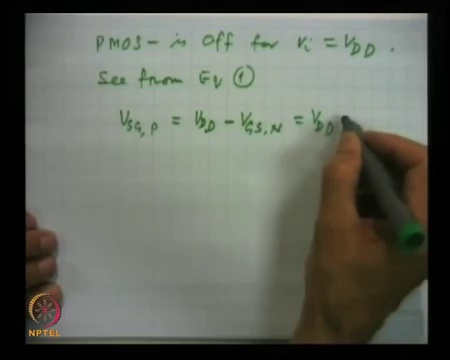 PMOS - is Off for Vi = VDD.
See from Eq ①
VSG,P = VDD - VGS,N = VDD
NPTEL